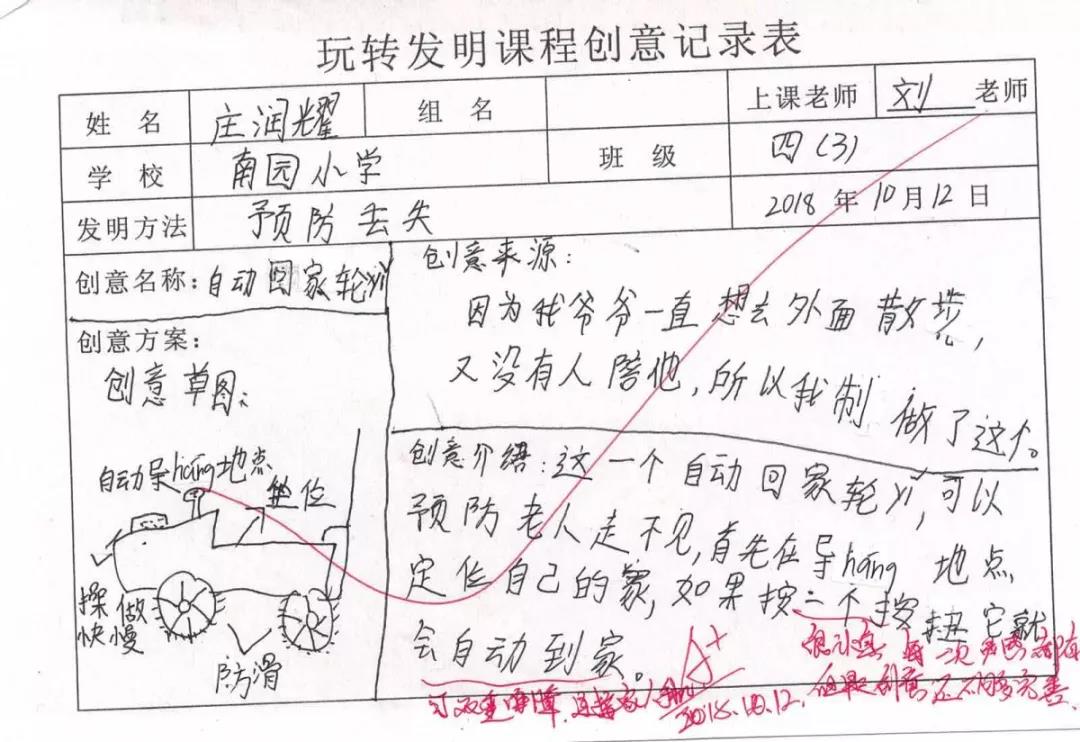 玩转发明课程创意记录表
姓名 庄润耀 组名 上课老师 刘 老师
学校 南园小学 班级 四(3)
发明方法 预防丢失 2018年10月12日
创意名称:自动回家轮yǐ
创意方案:
创意草图:
自动导háng地点
坐位
操做
快慢
防滑
创意来源:
因为我爷爷一直想去外面散步,
又没有人陪他,所以我制做了这个。
创意介绍:这一个自动回家轮yǐ,可以
预防老人走不见,首先在导háng地点,
定位自己的家,如果按一个按扭它就
会自动到家。
A+
2018.10.12.
很不错 每一次
但是创意还不够完善.